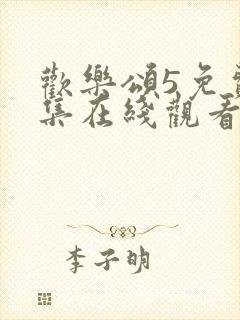 歡樂頌5免費
集在綫觀看
李子明